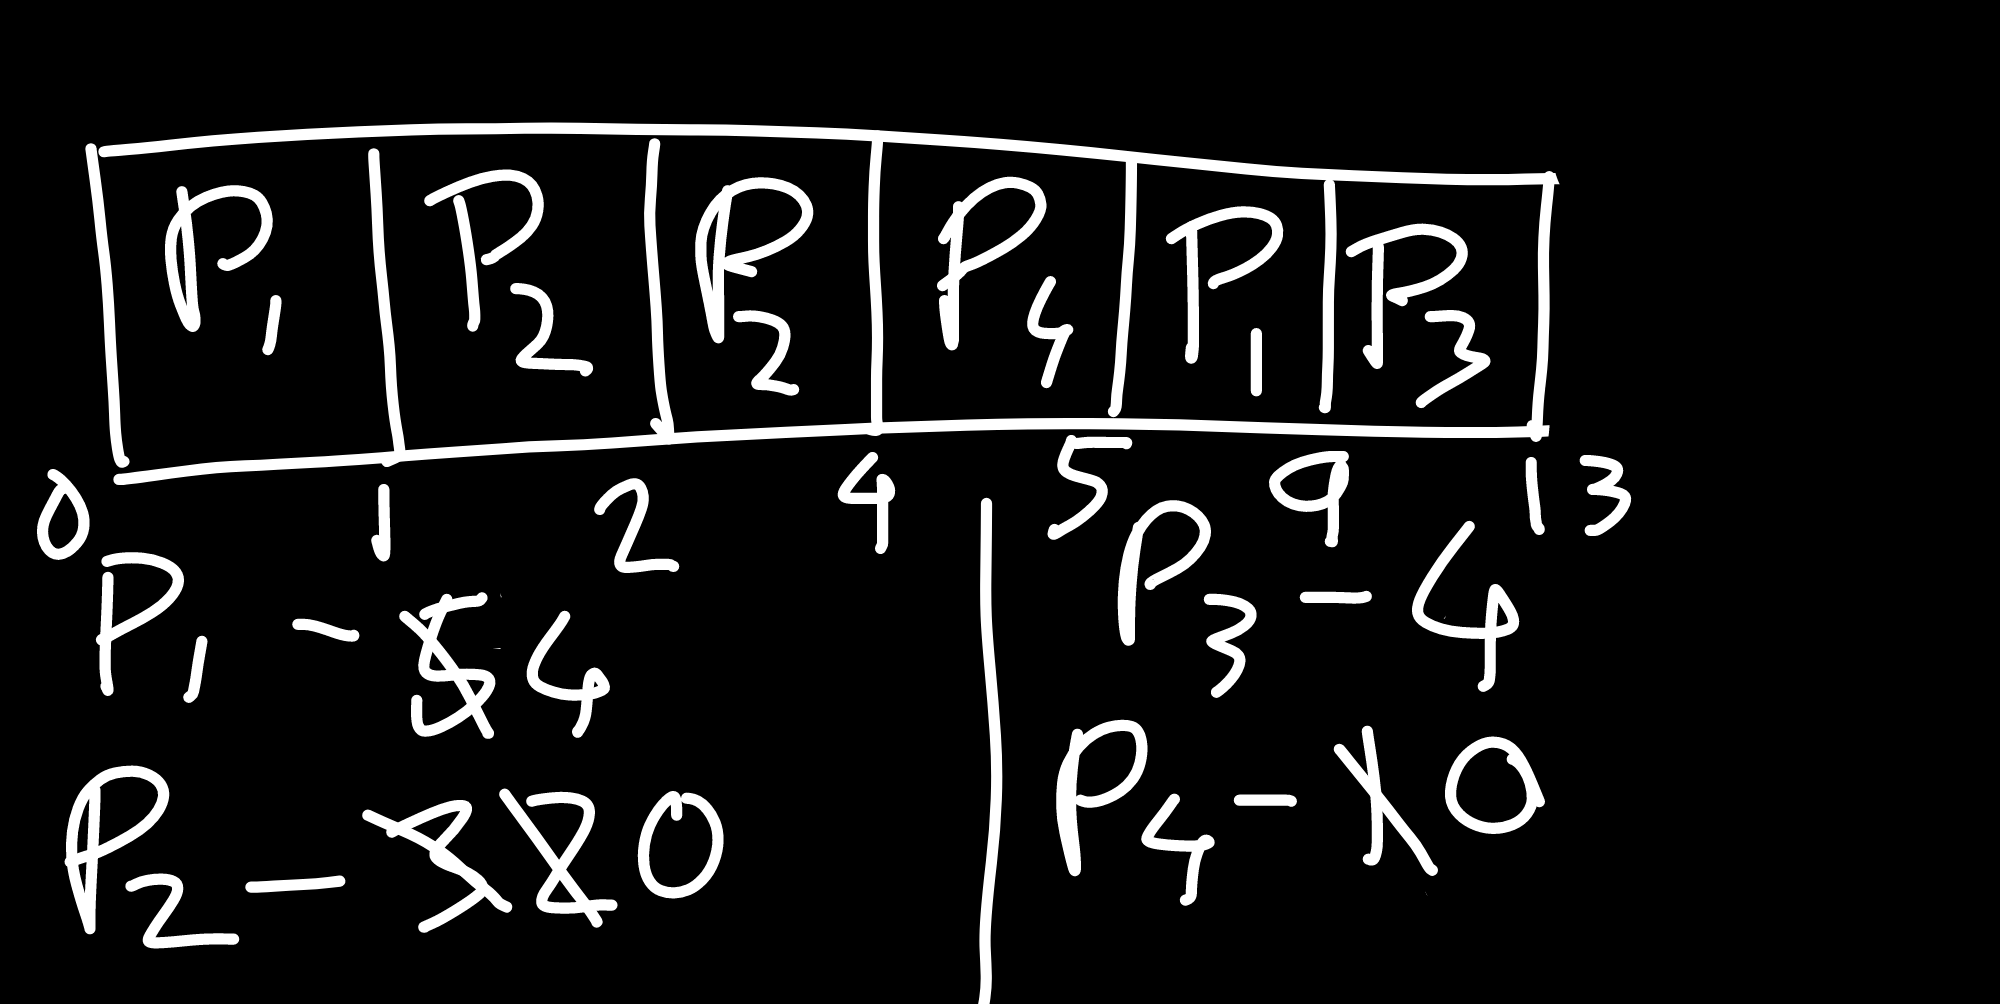 P1 P2 P2 P4 P1 P3
0 1 2 4 5 9 13
P1 - 5 4
P2 - 3 2 0
P3 - 4
P4 - 1 0